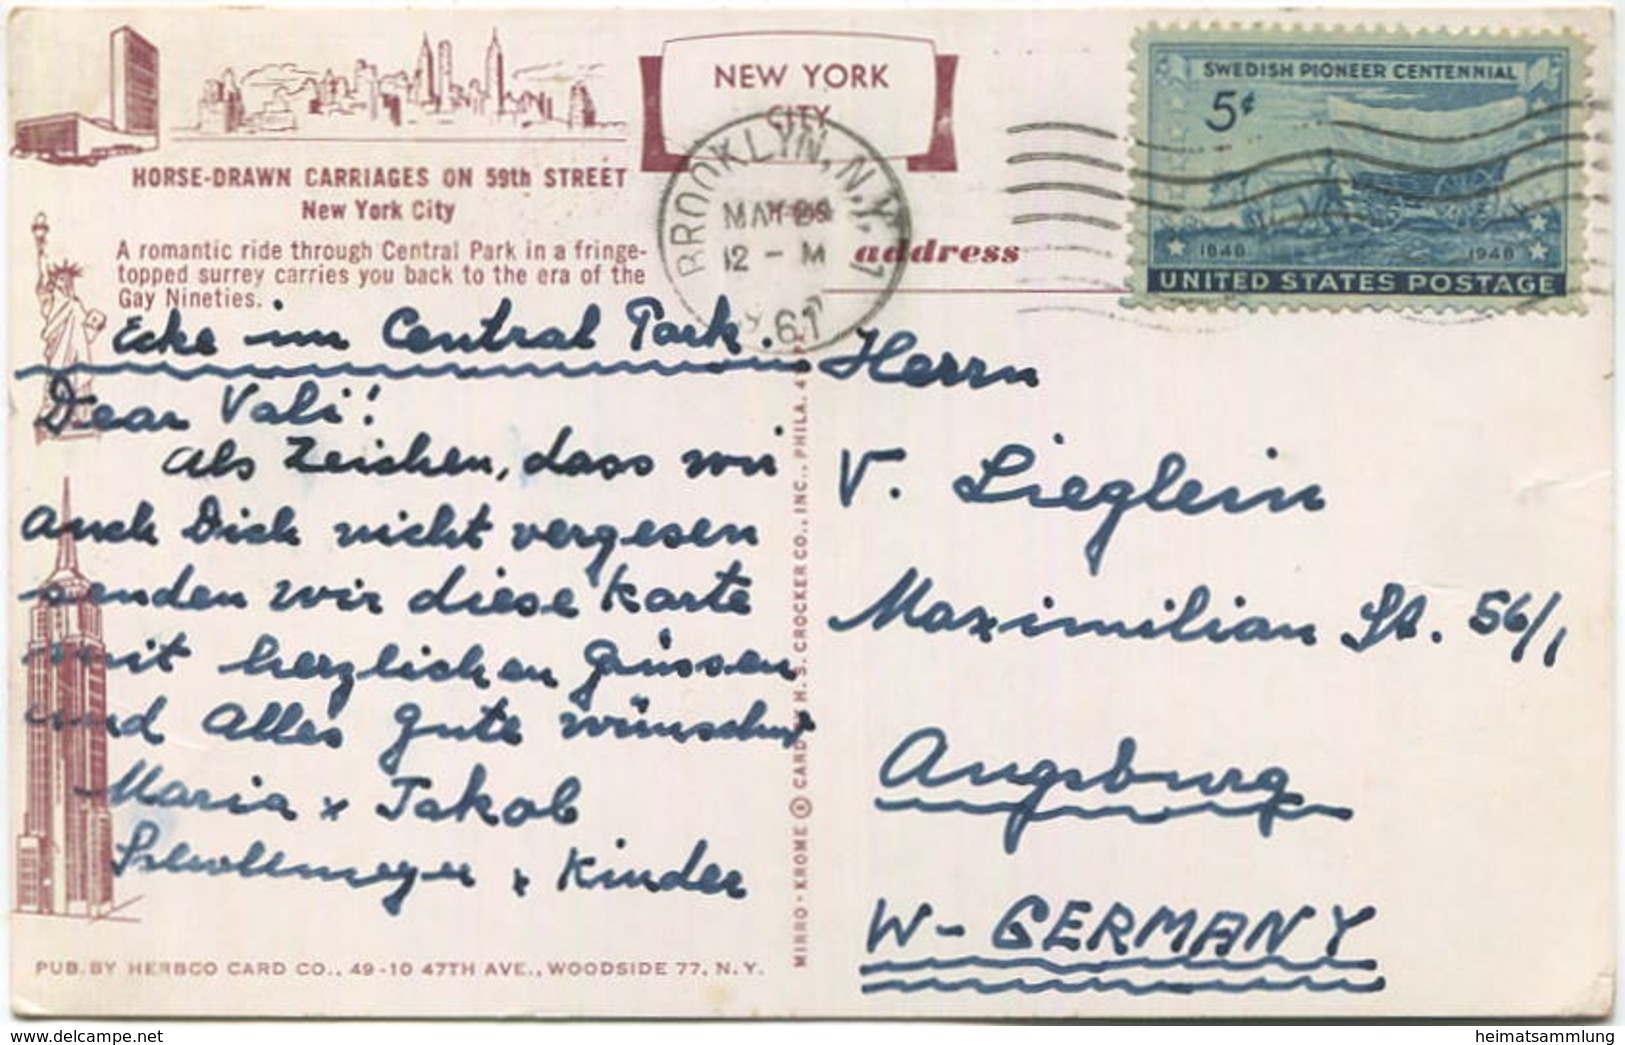 NEW YORK
CITY
HORSE-DRAWN CARRIAGES ON 59th STREET
New York City
A romantic ride through Central Park in a fringe-
topped surrey carries you back to the era of the
Gay Nineties.
address
BROOKLYN, N.Y. 1
MAY
12 - M
1961
SWEDISH PIONEER CENTENNIAL
5¢
1848 1948
UNITED STATES POSTAGE
Ecke im Central Park.
Dear Vali!
Als Zeichen, dass wir
auch Dich nicht vergesen
senden wir diese Karte
mit herzlichen Grüssen
und alles gute wünschend
Maria + Jakob
+ Kinder
Herrn
V. Lieglein
Maximilian St. 56/1
Augsburg
W-GERMANY
MIRRO-KROME ® CARD BY H. S. CROCKER CO., INC., PHILA. 4
PUB. BY HERBCO CARD CO., 49-10 47TH AVE., WOODSIDE 77, N.Y.
delcampe.net
heimatsammlung